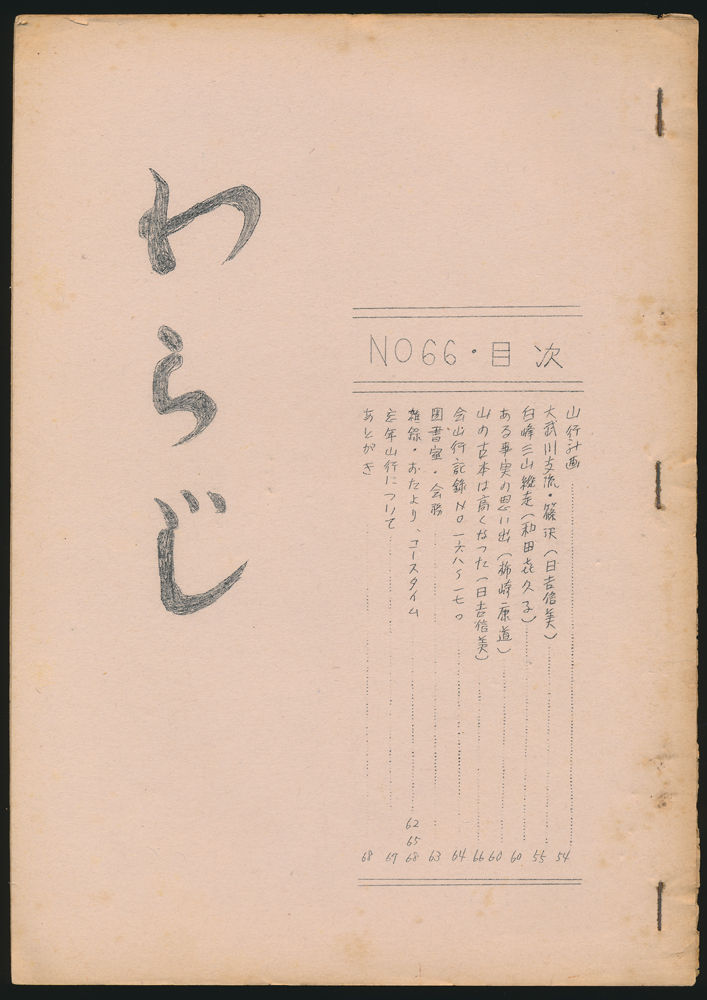 わらじ
NO66・目次
山行計画 54
大武川支流・篠沢(日吉信美) 55
白峰三山縦走(和田喜久子) 60
ある事実の思い出(柿崎康道) 60
山の古本は高くなった(日吉信美) 66
会山行記録NO一六八〜一七〇 64
図書室・会務 63
雑録・おたより、コースタイム 62 65 68
忘年山行について 67
あとがき 68